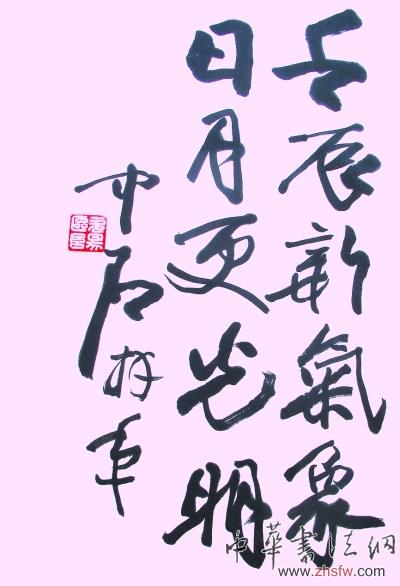 壬辰新氣象
日月更光明
中石拜年
中華書法網
www.zhsfw.com